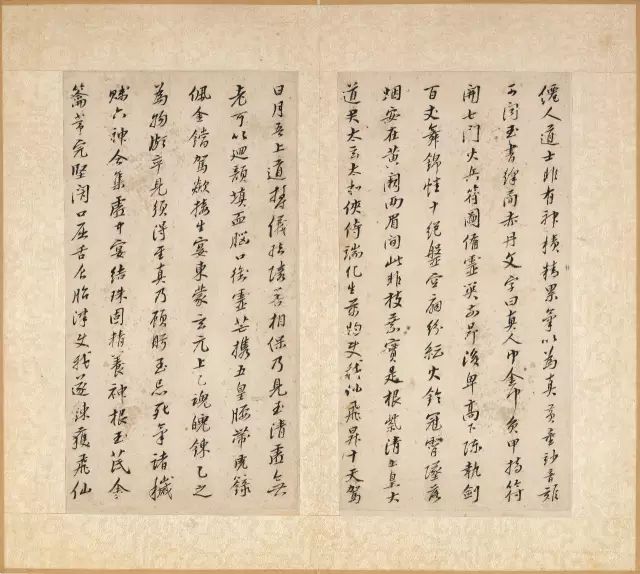 僊人道士非有神積精累氣以為真黃童妙音難
可聞玉書絳簡赤丹文字曰真人巾金巾負甲持符
開七門火兵符圖備靈關前昂後卑高下陳執劍
百丈舞錦幡十絕盤空扇紛紜火鈴冠霄隊落
烟安在黃闕兩眉間此非枝葉實是根紫清上皇大
道君太玄太和俠侍端化生萬物使我仙飛昇十天駕
日月吾上道鬱儀結璘善相保乃見玉清虛無
老可以迴顏填血腦口銜靈芒攜五皇腰帶虎籙
佩金鐺駕欻接生宴東蒙玄元上一魂魄鍊一之
為物頗卒見須得至真乃顧眄至忌死氣諸穢
賤六神合集虛中宴結珠固精養神根玉笢金
籥常完堅閉口屈舌食胎津使我遂鍊獲飛仙